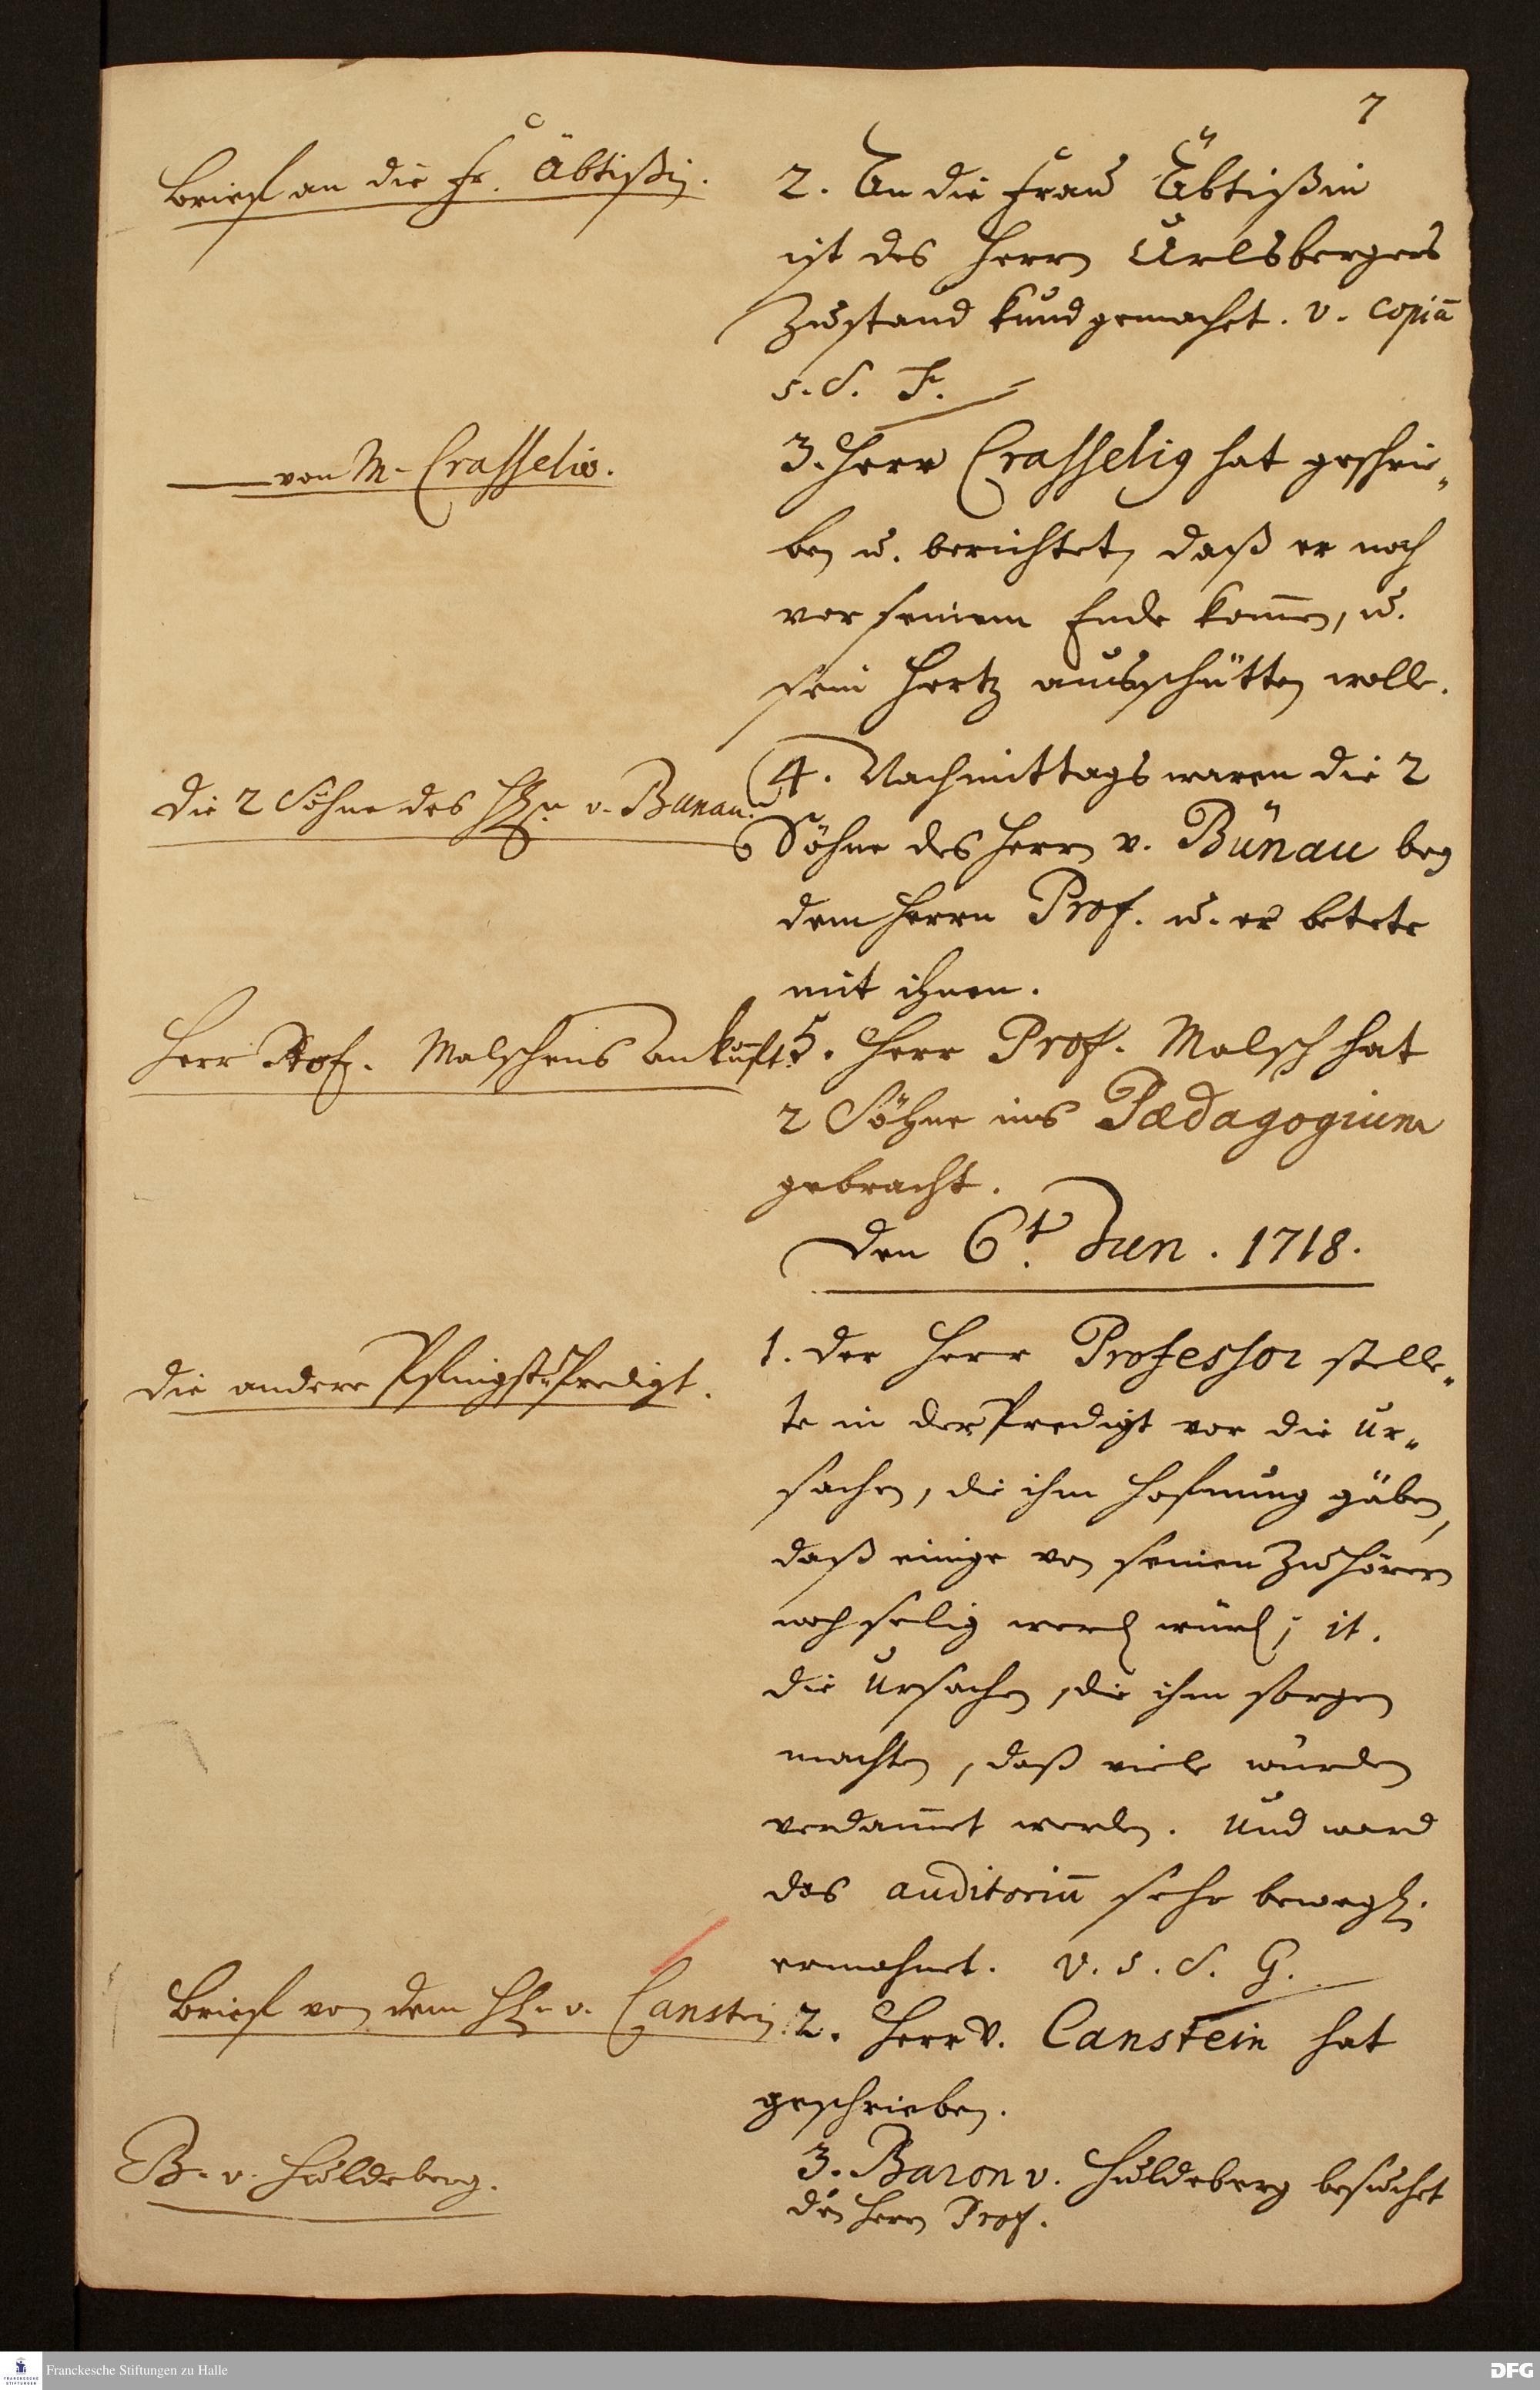 7
Brief an die Fr. Äbtißin.
2. An die Frau Äbtißin
ist des Herrn Urlsbergers
Zustand kund gemachet. v. copiā
s. S. F.
von M. Crasselio.
3. Herr Crasselig hat geschrie„
ben u. berichtet, daß er noch
vor seinem Ende kom̄en, u.
sein Hertz ausschütten wolle.
Die 2 Söhne des H. v. Bunau.
4. Nachmittags waren die 2
Söhne des Herrn v. Bünau bey
dem Herrn Prof. u. er betete
mit ihnen.
Herr Prof. Malschens ankunft.
5. Herr Prof. Malsch hat
2 Söhne ins Pædagogium
gebracht.
Den 6t. Jun. 1718.
Die andere Pfingst-Predigt.
1. Der Herr Professor stelle„
te in der Predigt vor die Ur„
sachen, die ihm Hofnung gäben,
daß einige von seinen Zuhörern
noch selig werd würd; it.
die Ursachen, die ihm sorgen
machten, daß viele würden
verdam̄et werden. Und ward
das auditoriū sehr bewegl.
ermahnet. v. s. S. G.
Brief von dem H. v. Canstein.
2. Herr v. Canstein hat
geschrieben.
B. v. Huldeberg.
3. Baron v. Huldeberg besuchet
den Herrn Prof.
FRANCKESCHE STIFTUNGEN
Franckesche Stiftungen zu Halle
DFG